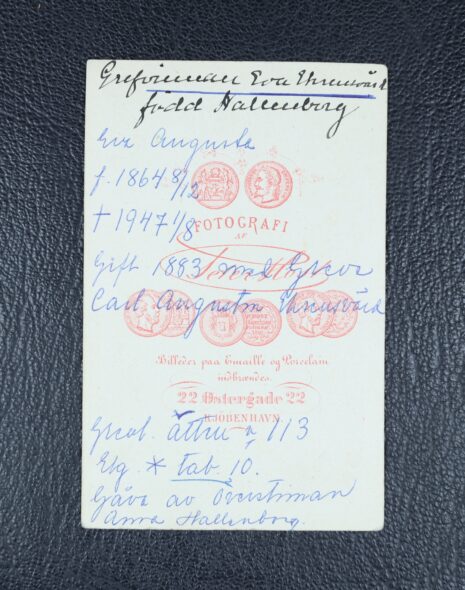 Grefvinnan Eva Ehrensvärd
född Hallenborg
Eva Augusta
f. 1864 8/12
† 1947 1/8
FOTOGRAFI
AF
Gift 1883 med Greve
Carl Augustin Ehrensvärd
Billeder paa Emaille og Porcelain
indbrændes
22 Østergade 22
KJØBENHAVN
Grevl. ätten nr 113
Elg. * tab. 10.
Gåva av Överstinnan
Anna Hallenborg.